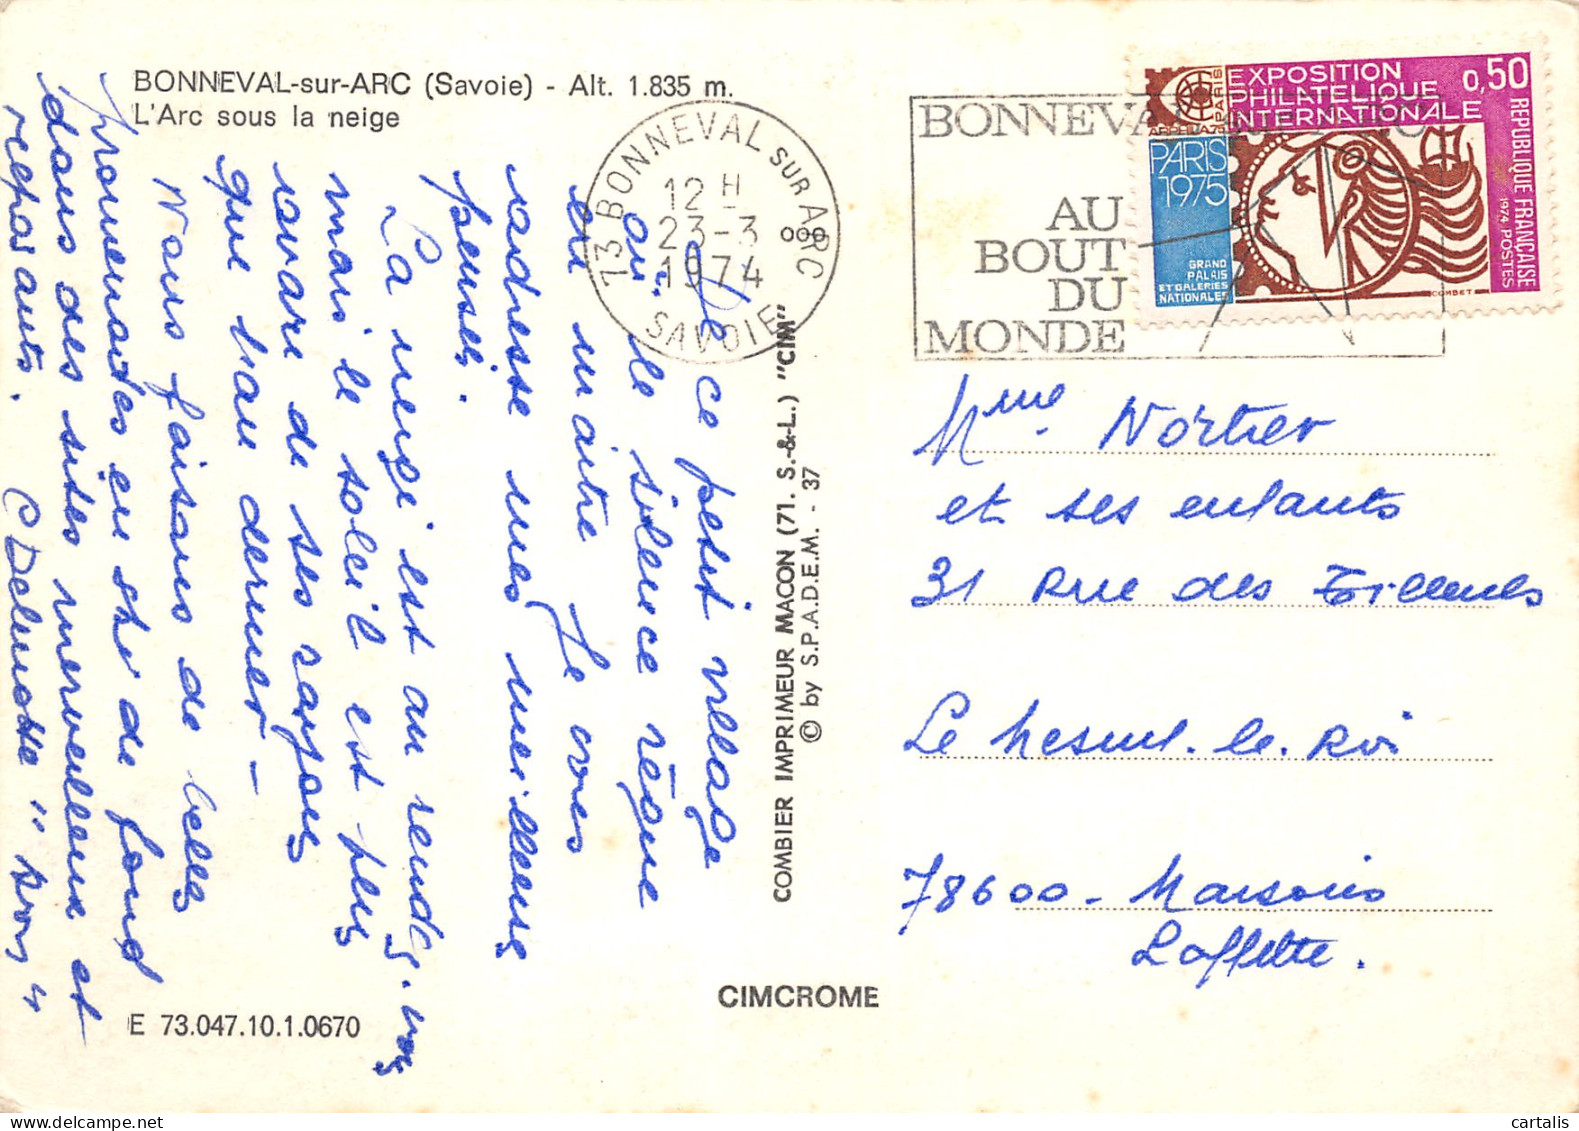 BONNEVAL-sur-ARC (Savoie) - Alt. 1.835 m.
L'Arc sous la neige
De ce petit village
où le silence règne
en maître Je vous
adresse mes meilleures
pensées.
La neige est au rendez-vous
mais le soleil est plus
avare de ses rayons
que l'an dernier -
Nous faisons de belles
promenades en ski de fond
dans des sites merveilleux et
reposants.
C Delmotte
73 BONNEVAL SUR ARC
12 H
23-3
1974
SAVOIE
BONNEVAL
AU
BOUT
DU
MONDE
EXPOSITION
PHILATELIQUE
INTERNATIONALE
0,50
ARPHILA 75 PARIS
PARIS
1975
GRAND
PALAIS
ET GALERIES
NATIONALES
REPUBLIQUE FRANÇAISE
1974 POSTES
COMBET
COMBIER IMPRIMEUR MACON (71. S.-&-L.) "CIM"
© by S.P.A.D.E.M. - 37
Mme Nortier
et ses enfants
31 Rue des Tilleuls
Le Mesnil-le-Roi
78600 - Maisons
Laffitte.
CIMCROME
E 73.047.10.1.0670
cartalis